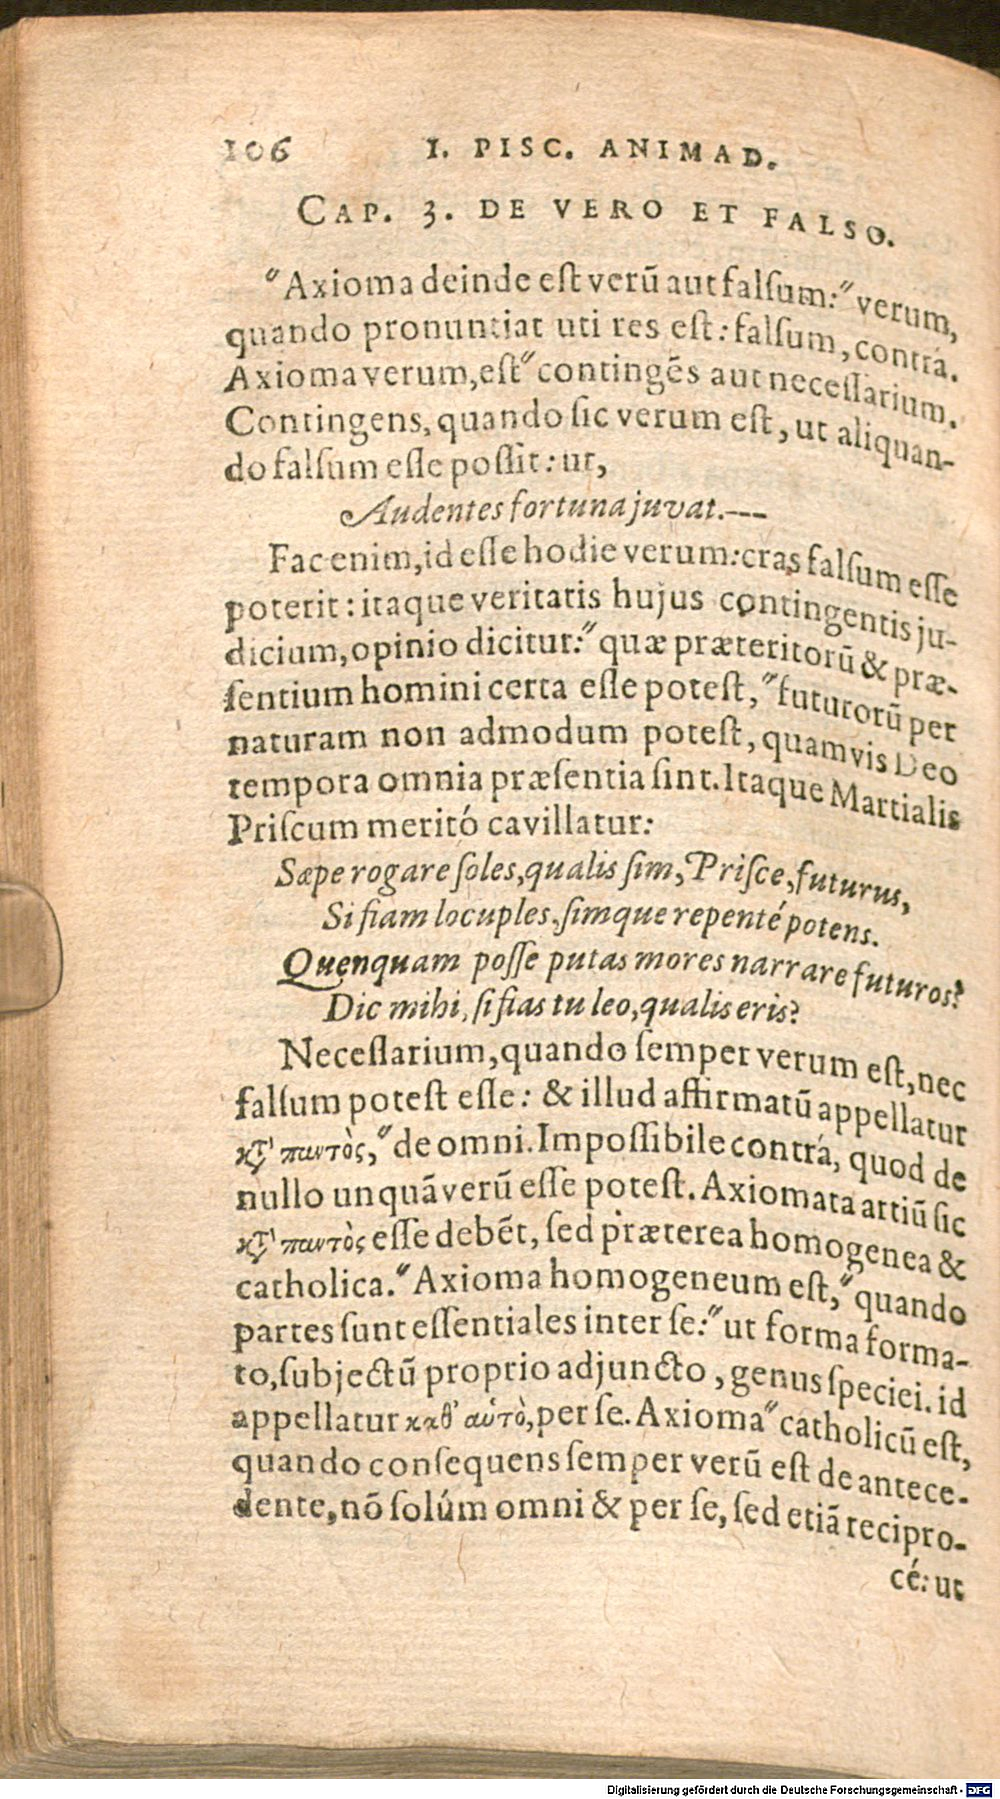 106 I. PISC. ANIMAD.
CAP. 3. DE VERO ET FALSO.
"Axioma deinde est verũ aut falsum:" verum,
quando pronuntiat uti res est: falsum, contrà.
Axioma verum, est" contingẽs aut necessarium.
Contingens, quando sic verum est, ut aliquan-
do falsum esse possit: ut,
Audentes fortuna juvat.---
Fac enim, id esse hodie verum: cras falsum esse
poterit: itaque veritatis hujus contingentis ju-
dicium, opinio dicitur:" quæ præteritorũ & præ-
sentium homini certa esse potest, "futurorũ per
naturam non admodum potest, quamvis Deo
tempora omnia præsentia sint. Itaque Martialis
Priscum meritó cavillatur:
Sæpe rogare soles, qualis sim, Prisce, futurus,
Si fiam locuples, simque repenté potens.
Quenquam posse putas mores narrare futuros?
Dic mihi, si fias tu leo, qualis eris?
Necessarium, quando semper verum est, nec
falsum potest esse: & illud affirmatũ appellatur
κτ̀ παντὸς, "de omni. Impossibile contrá, quod de
nullo unquã verũ esse potest. Axiomata artiũ sic
κτ̀ παντὸς esse debẽt, sed præterea homogenea &
catholica. "Axioma homogeneum est," quando
partes sunt essentiales inter se:" ut forma forma-
to, subjectũ proprio adjuncto, genus speciei. id
appellatur καθ' αὑτὸ, per se. Axioma" catholicũ est,
quando consequens semper verũ est de antece-
dente, nõ solúm omni & per se, sed etiã recipro-
cé: ut
Digitalisierung gefördert durch die Deutsche Forschungsgemeinschaft - DFG